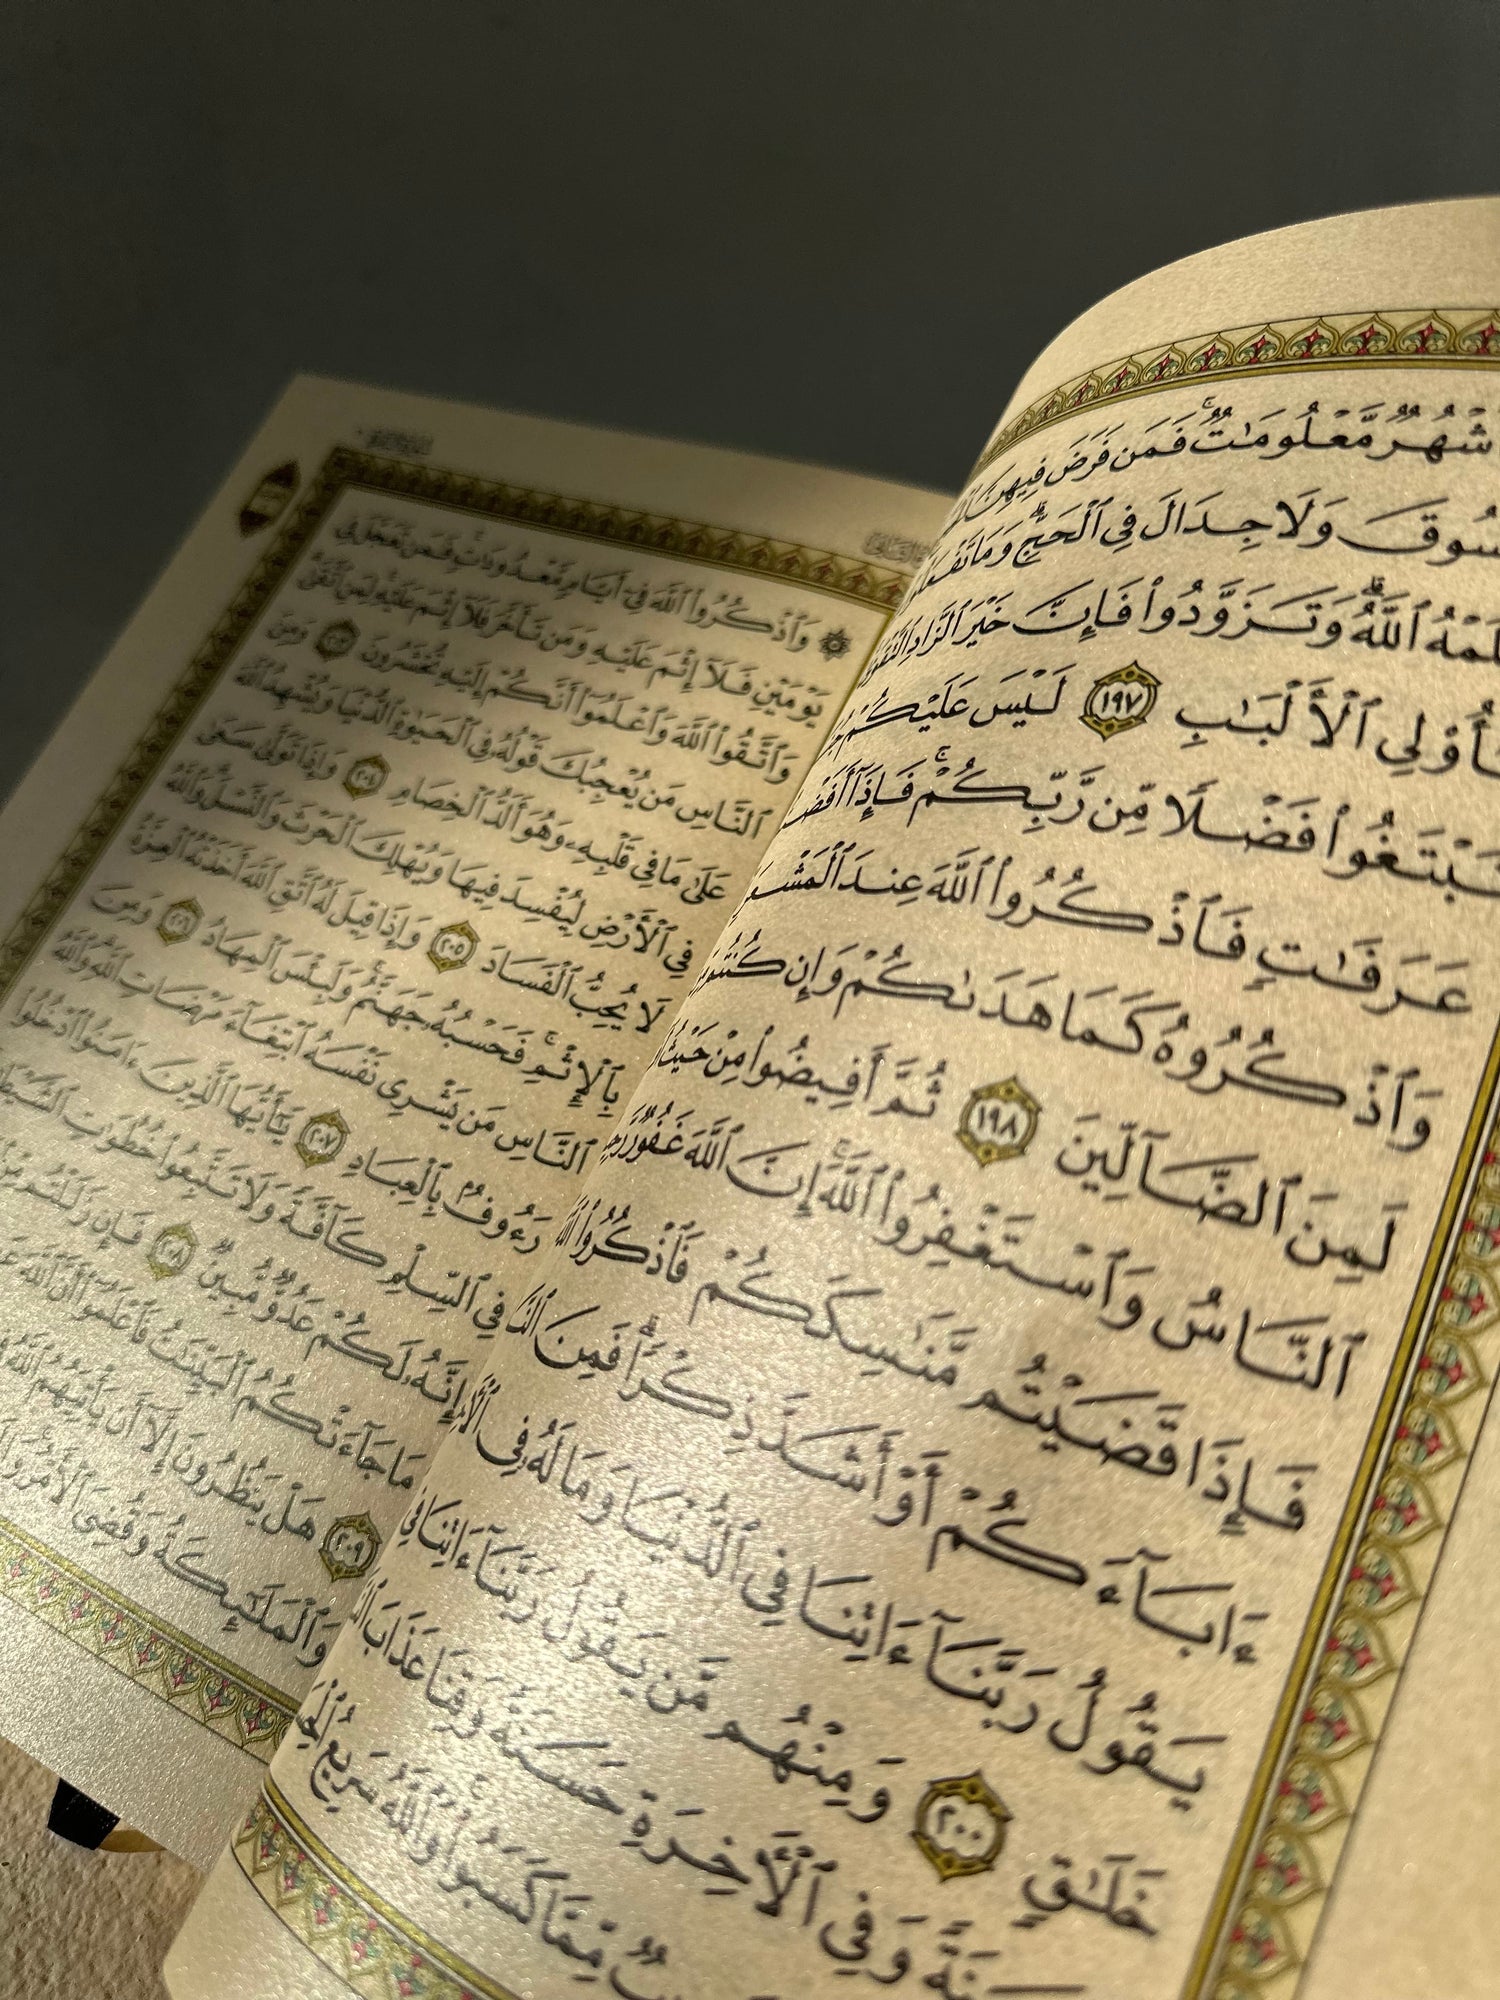 شْهُرٌ مَّعْلُومَٰتٌ ۚ فَمَن فَرَضَ فِيهِنَّ
سُوقَ وَلَا جِدَالَ فِى ٱلْحَجِّ ۗ وَمَا تَفْعَلُ
لَمْهُ ٱللَّهُ ۗ وَتَزَوَّدُوا۟ فَإِنَّ خَيْرَ ٱلزَّادِ ٱلتَّقْوَ
أُو۟لِى ٱلْأَلْبَٰبِ ١٩٧ لَيْسَ عَلَيْكُمْ
تَبْتَغُوا۟ فَضْلًا مِّن رَّبِّكُمْ ۚ فَإِذَآ أَفَضْ
عَرَفَٰتٍ فَٱذْكُرُوا۟ ٱللَّهَ عِندَ ٱلْمَشْ
وَٱذْكُرُوهُ كَمَا هَدَىٰكُمْ وَإِن كُنتُم
لَمِنَ ٱلضَّآلِّينَ ١٩٨ ثُمَّ أَفِيضُوا۟ مِنْ حَيْثُ
ٱلنَّاسُ وَٱسْتَغْفِرُوا۟ ٱللَّهَ ۚ إِنَّ ٱللَّهَ غَفُورٌ
فَإِذَا قَضَيْتُم مَّنَٰسِكَكُمْ فَٱذْكُرُوا۟
ءَابَآءَكُمْ أَوْ أَشَدَّ ذِكْرًا ۗ فَمِنَ
يَقُولُ رَبَّنَآ ءَاتِنَا فِى ٱلدُّنْيَا وَمَا لَهُۥ فِى
خَلَٰقٍ ٢٠٠ وَمِنْهُم مَّن يَقُولُ رَبَّنَآ ءَاتِنَا فِى
سَنَةً وَفِى ٱلْأَخِرَةِ حَسَنَةً وَقِنَا عَذَابَ
مِّمَّا كَسَبُوا۟ ۚ وَٱللَّهُ سَرِيعُ
۞ وَٱذْكُرُوا۟ ٱللَّهَ فِىٓ أَيَّامٍ مَّعْدُودَٰتٍ ۚ فَمَن تَعَجَّلَ فِى
يَوْمَيْنِ فَلَآ إِثْمَ عَلَيْهِ وَمَن تَأَخَّرَ فَلَآ إِثْمَ عَلَيْهِ ۚ لِمَنِ ٱتَّقَىٰ ۗ
وَٱتَّقُوا۟ ٱللَّهَ وَٱعْلَمُوٓا۟ أَنَّكُمْ إِلَيْهِ تُحْشَرُونَ ٢٠٣ وَمِنَ
ٱلنَّاسِ مَن يُعْجِبُكَ قَوْلُهُۥ فِى ٱلْحَيَوٰةِ ٱلدُّنْيَا وَيُشْهِدُ ٱللَّهَ
عَلَىٰ مَا فِى قَلْبِهِۦ وَهُوَ أَلَدُّ ٱلْخِصَامِ ٢٠٤ وَإِذَا تَوَلَّىٰ سَعَىٰ
فِى ٱلْأَرْضِ لِيُفْسِدَ فِيهَا وَيُهْلِكَ ٱلْحَرْثَ وَٱلنَّسْلَ ۗ وَٱللَّهُ
لَا يُحِبُّ ٱلْفَسَادَ ٢٠٥ وَإِذَا قِيلَ لَهُ ٱتَّقِ ٱللَّهَ أَخَذَتْهُ ٱلْعِزَّةُ
بِٱلْإِثْمِ ۚ فَحَسْبُهُۥ جَهَنَّمُ ۚ وَلَبِئْسَ ٱلْمِهَادُ ٢٠٦ وَمِنَ
ٱلنَّاسِ مَن يَشْرِى نَفْسَهُ ٱبْتِغَآءَ مَرْضَاتِ ٱللَّهِ ۗ وَٱللَّهُ
رَءُوفٌۢ بِٱلْعِبَادِ ٢٠٧ يَٰٓأَيُّهَا ٱلَّذِينَ ءَامَنُوا۟ ٱدْخُلُوا۟
فِى ٱلسِّلْمِ كَآفَّةً وَلَا تَتَّبِعُوا۟ خُطُوَٰتِ ٱلشَّيْطَٰ
إِنَّهُۥ لَكُمْ عَدُوٌّ مُّبِينٌ ٢٠٨ فَإِن زَلَلْتُم مِّنۢ
مَا جَآءَتْكُمُ ٱلْبَيِّنَٰتُ فَٱعْلَمُوٓا۟ أَنَّ ٱللَّهَ
٢٠٩ هَلْ يَنظُرُونَ إِلَّآ أَن يَأْتِيَهُمُ ٱللَّهُ
وَٱلْمَلَٰٓئِكَةُ وَقُضِىَ ٱلْأَمْرُ ۚ وَ